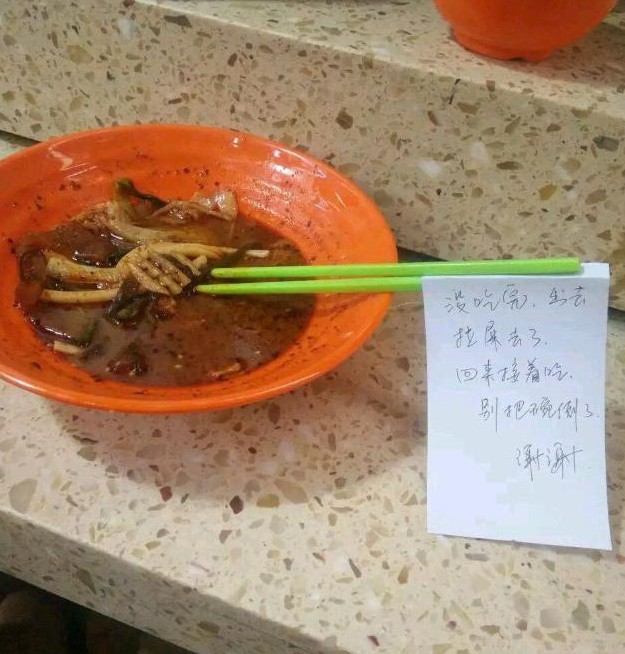 没吃完，出去
拉屎去了。
回来接着吃。
别把碗倒了
谢谢